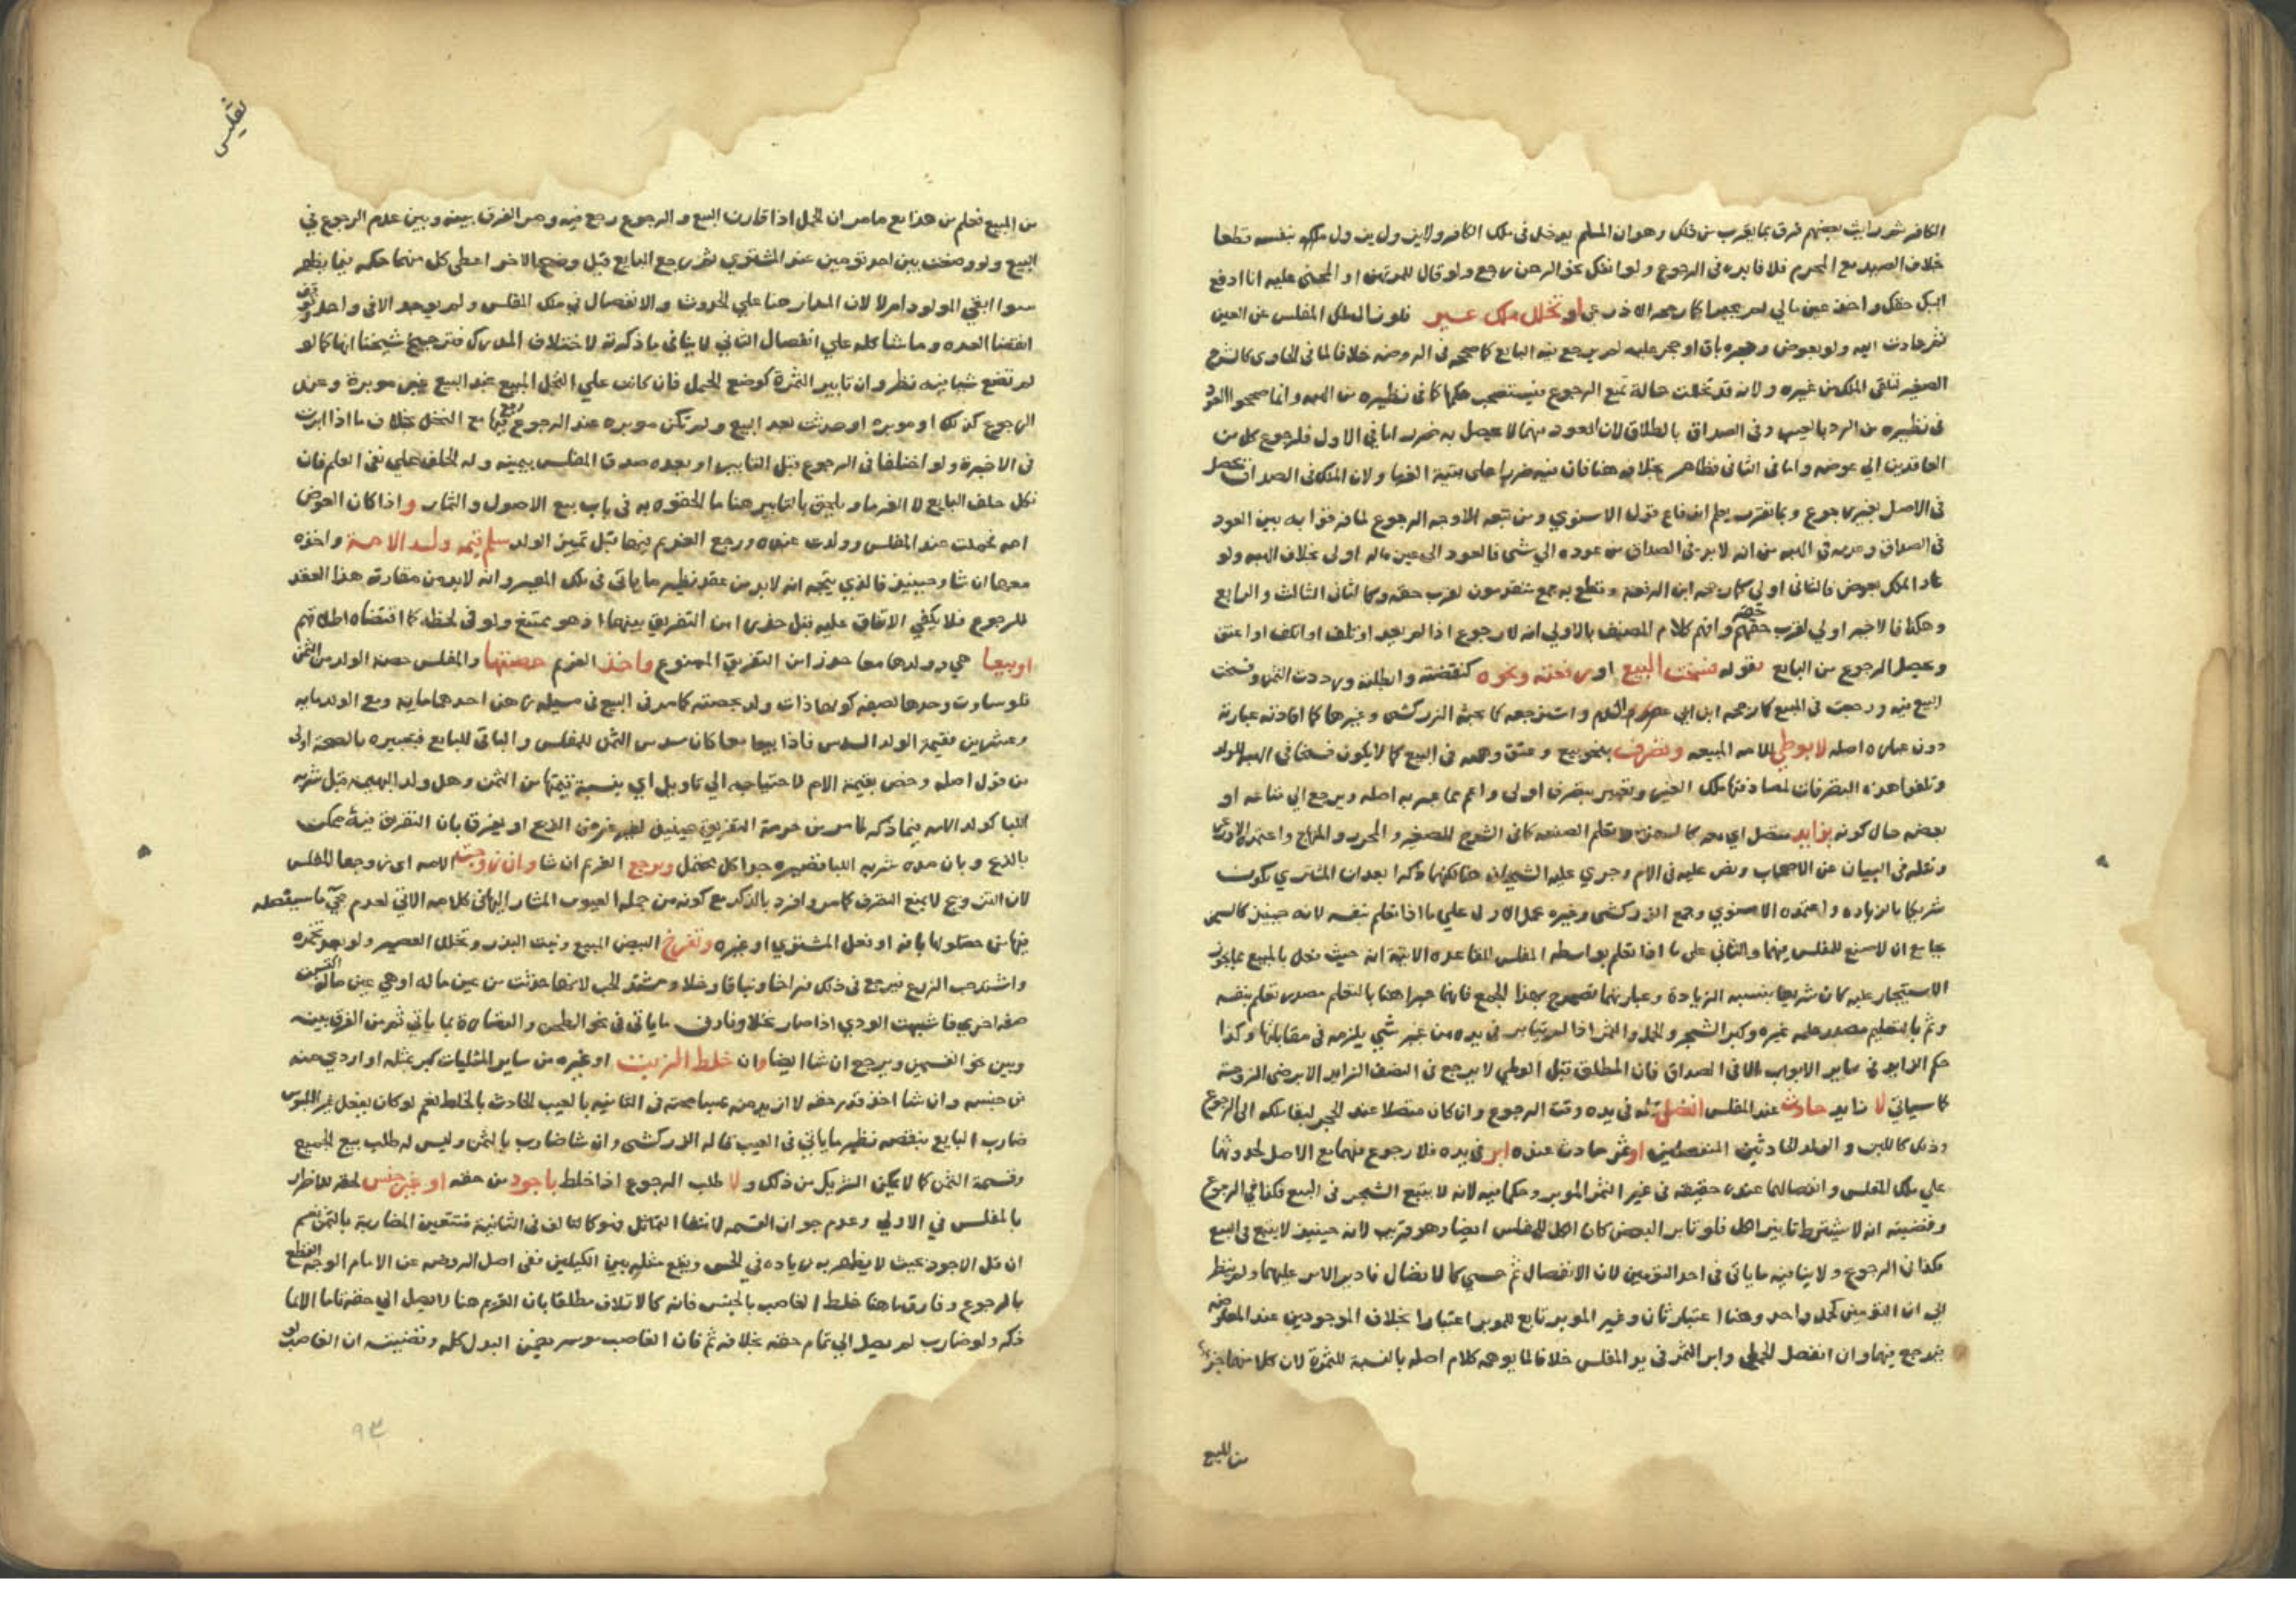 الكافر ثم رايت بعضهم فرق بما يقرب من ذلك وهو ان المسلم يدخل في ملك الكافر ولا يزول بنفسه قطعا
خلاف الصيد مع المحرم فلا فايدة في الرجوع ولو انفك نحو الرهن رجع ولو قال للمرتهن او المجني عليه انا ادفع
اليك حقك واخذ عين مالي لم يجبرا كما رجحه الاذرعي او تخلل ملك غير فلو زال ملك المفلس عن العين
ثم عادت اليه ولو بعوض وحجره باق او حجر عليه لم يرجع فيه البايع كما صححه في الروضة خلافا لما في الحاوي كالشرح
الصغير لتلقي الملك من غيره ولانه قد تخللت حالة تمنع الرجوع فيستصحب حكمها كما في نظيره من الهبة وانما صححوا العود
في نظيره من الرد بالعيب وفي الصداق بالطلاق لان العود فيهما لا يحصل به ضرر اما في الاول فلرجوع كل من
العاقدين الي عوضه واما في الثاني فظاهر بخلافه هنا فان فيه ضررا على بقية الغرما ولان الملك في الصداق يحصل
في الاصل بغير رجوع وبما تقرر يعلم اندفاع قول الاسنوي ومن تبعه الاوجه الرجوع لما فرقوا به بين العود
في الصداق وعدمه في الهبة من انه لا بد في الصداق من عوده الي شي فالعود الى عين ماله اولى بخلاف الهبة ولو
عاد الملك بعوض فالثاني اولى كما رجحه ابن الرفعة وقطع به جمع متقدمون لقرب حقه وكالثاني الثالث والرابع
وهكذا فالاخير اولي لقرب حقهم وافهم كلام المصنف بالاولي انه لا رجوع اذا لم يجد او تلف او اتلف او اعتق
ويحصل الرجوع من البايع بقوله فسخت البيع او رفعته ونحوه كنقضته وابطلته ورددت الثمن وفسخت
البيع فيه ورجعت في المبيع كما رجحه ابن ابي واسترجعه كما بحثه الزركشي وغيرها كما افادته عبارته
دون عبارة اصله لا بوطي للامة المبيعة وتصرف بنحو بيع وعتق وهبة في البيع كما لا يكون فسخا في الهبة للولد
وتلغوا هذه التصرفات لمصادفتها ملك الغير وتعبيره بتصرف اولى واعم مما عبر به اصله ويرجع الي متاعه او
بعضه حال كونه بزايد متصل اي معه كالسمن وتعلم الصنعة كما في الشرح الصغير والمحرر والمنهاج واعتمده
ونقله في البيان عن الاصحاب ونص عليه في الام وجري عليه الشيخان هنا لكنهما ذكرا بعد ان المشتري يكون
شريكا بالزيادة واعتمده الاسنوي وجمع الزركشي وغيره بحمل الاول علي ما اذا تعلم بنفسه لانه حينيذ كالسمن
بجامع ان لا صنع للمفلس فيهما والثاني على ما اذا تعلم بواسطة المفلس للقاعدة الاتية انه حيث فعل بالمبيع ما يجوز
الاستيجار عليه كان شريكا بنسبة الزيادة وعبارتهما تصرح بهذا الجمع فانهما عبرا هنا بالتعلم مصدر تعلم بنفسه
وثم بالتعليم مصدر علمه غيره وكبر الشجر والحمل والثمر اذا لم يتابر في يده من غير شي يلزمه في مقابلتها وكذا
حكم الزايد في ساير الابواب الا في الصداق فان المطلق قبل الوطي لا يرجع في النصف الزايد الا برضى الزوجة
كما سياتي لا زايد حادث عند المفلس انفصل مثله في يده وقت الرجوع وان كان متصلا عند الحجر لبقا ملكه الى الرجوع
وذلك كاللبن والولد الحادثين المنفصلين او ثمر حادث عنده ابر في يده فلا رجوع فيهما مع الاصل لحدوثهما
علي ملك المفلس وانفصالهما عنده حقيقة في غير الثمر الموبر وحكما فيه لانه لا يتبع الشجر في البيع فكذا في الرجوع
وقضيته انه لا يشترط تابير الكل فلو تابر البعض كان الكل للمفلس ايضا وهو قريب لانه حينيذ لا يتبع في البيع
فكذا في الرجوع ولا ينافيه ما ياتي في احد التومين لان الانفصال ثم حسي كالاتصال فادير الامر عليهما ولم ينظر
الى ان التومين كحمل واحد وهنا اعتبار ثان وغير الموبر تابع للموبر اعتبارا بخلاف الموجودين عند العقد
فيرجع فيهما وان انفصل الحمل وابر الثمر في يد المفلس خلافا لما يوهمه كلام اصله بالنسبة للثمرة لان كلا منهما جزء
من المبيع
تفليس
من المبيع فعلم من هذا مع ما مر ان الحمل اذا قارن البيع والرجوع رجع فيه ومر الفرق بينه وبين عدم الرجوع في
البيع ولو وضعت بين احد تومين عند المشتري ثم رجع البايع قبل وضع الاخر اعطى كل منهما حكمه فيما يظهر
سوا ابقي المولود ام لا لان المدار هنا علي الحدوث والانفصال في ملك المفلس ولم يوجد الا في واحد
انقضا العدة وما شاكله علي انفصال الثاني لا ينافي ما ذكرته لاختلاف المدرك فترجيح شيخنا انها كما لو
لم تضع شيا فيه نظر وان تابير الثمرة كوضع الحمل فان كانت علي النخل المبيع عند البيع غير موبرة وعند
الرجوع كذلك او موبرة او حدثت بعد البيع ولم تكن موبرة عند الرجوع رجع فيها مع النخل بخلاف ما اذا ابرت
في الاخيرة ولو اختلفا في الرجوع قبل التابير او بعده صدق المفلس بيمينه وله الحلف علي نفي العلم فان
نكل حلف البايع لا الغرما ويلحق بالتابير هنا ما الحقوه به في باب بيع الاصول والثمار واذا كان العوض
امة فحملت عند المفلس وولدت عنده ورجع الغريم فيها قبل تمييز الولد سلم قيمة ولد الامة واخذه
معها ان شا وحينيذ فالذي يتجه انه لا بد من عقد نظير ما ياتي في ملك المعير وانه لا بد من مقارنة هذا العقد
للرجوع فلا يكفي الاتفاق عليه قبل حذرا من التفريق بينهما اذ هو ممتنع ولو في لحظة كما اقتضاه اطلاقهم
او بيعا هي وولدها معا حذرا من التفريق الممنوع واخذ الغريم حصتها والمفلس حصة الولد من الثمن
فلو ساوت وحدها بصفة كونها ذات ولد بحصته كما مر في البيع في مسيلة رهن احدهما ماية ومع الولد ماية
وعشرين فقيمة الولد السدس فاذا بيعا معا كان سدس الثمن للمفلس والباقي للبايع فتعبيره بالحصة اولى
من قول اصله وخص بقيمة الام لاحتياجه الي تاويل اي بنسبة قيمتها من الثمن وهل ولد البهيمة قبل شربه
اللبا كولد الامة فيما ذكر لما مر من حرمة التفريق حينيذ لغير غرض الذبح او يفرق بان التفريق فيه ممكن
بالذبح وبان مدة شربه اللبا قصيرة جدا كل محتمل ويرجع الغريم ان شا وان زوجت الامة اي زوجها المفلس
لان التزويج لا يمنع التصرف كما مر وافرد بالذكر مع كونه من جملة العيوب المشار اليها في كلامه الاتي لعدم مجي ما سيفصله
فيها من حصولها بافة او فعل المشتري او غيره وتفرخ البيض المبيع ونبت البذر وتخلل العصير ولو بعد تخمره
واشتد حب الزرع فيرجع في ذلك فراخا ونباتا وخلا ومشتد الحب لانها حدثت من عين ماله او هي عين ماله اكتسبت
صفة اخري فاشبهت الودي اذا صار نخلا وفارق ما ياتي في نحو الطحن والقصارة بما ياتي ثم من الفرق بينه
وبين نحو السمن ويرجع ان شا ايضا وان خلط الزيت او غيره من ساير المثليات كبر بمثله او اردي منه
من جنسه وان شا اخذ قدر حقه لا ازيد منه عيبا محته في الثانية بالعيب الحادث بالخلط نعم لو كان بفعل غير المفلس
ضارب البايع بنقصه نظير ما ياتي في العيب قاله الزركشي وان شا ضارب بالثمن وليس له طلب بيع الجميع
وقسمة الثمن كما لا يمكن الشريك من ذلك ولا طلب الرجوع اذا خلط باجود من حقه او غير جنس لحقه للاضرار
بالمفلس في الاولي وعدم جواز القسمة لانتفا التماثل فهو كالتالف في الثانية فتتعين المضاربة بالثمن نعم
ان قل الاجود بحيث لا يظهر به زيادة في الحس ويقع مثله بين الكيلين ففي اصل الروضة عن الامام الوجه القطع
بالرجوع وفارق ما هنا خلط الغاصب بالجنس فانه كالاتلاف مطلقا بان الغريم هنا لا يصل الي حقه تاما الا بما
ذكر ولو ضارب لم يصل الي تمام حقه بخلافه ثم فان الغاصب موسر يضمن البدل كله وقضيته ان الغاصب لو
٩٣